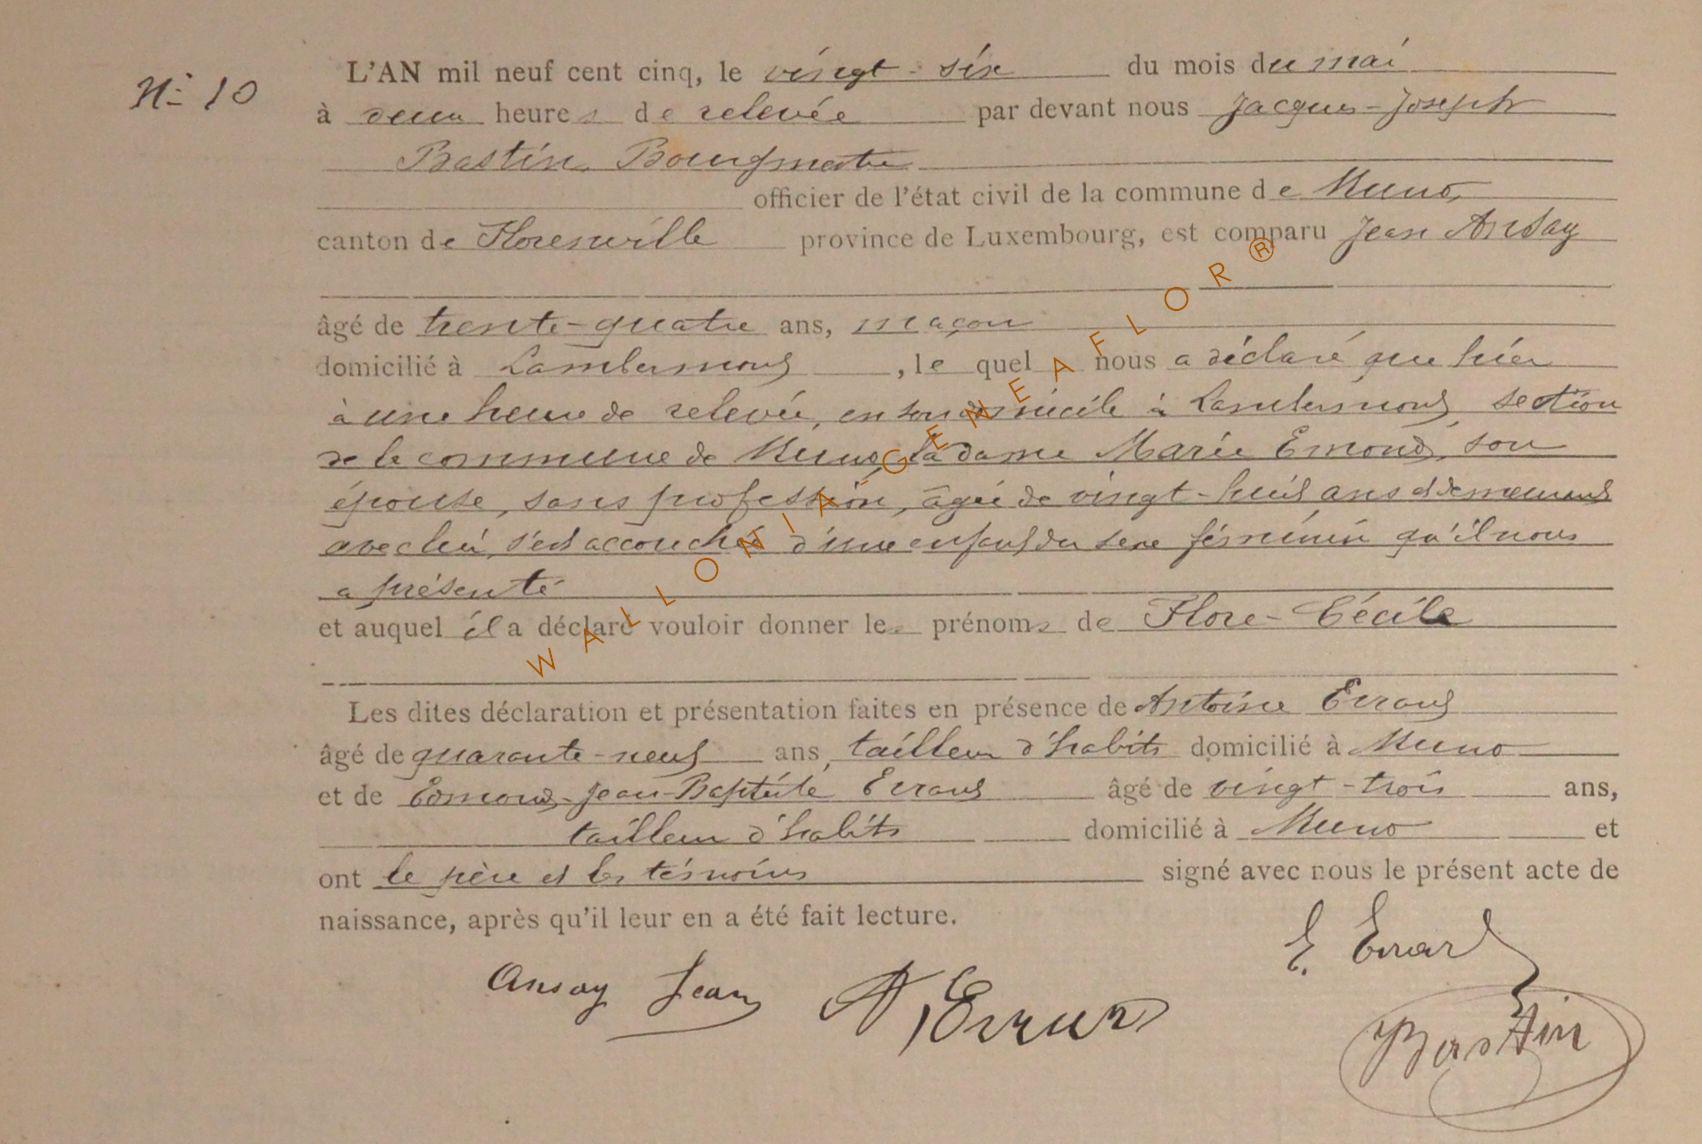 N° 10
L'AN mil neuf cent cinq, le vingt-six du mois de mai
à deux heures de relevée par devant nous Jacques-Joseph
Bastin, Bourgmestre
officier de l'état civil de la commune de Muno,
canton de Florenville province de Luxembourg, est comparu Jean Ansay
âgé de trente-quatre ans, maçon
domicilié à Lambermont, le quel nous a déclaré que hier
à une heure de relevée, en son domicile à Lambermont, section
de la commune de Muno, la dame Marie Emond, son
épouse, sans profession, âgée de vingt-huit ans et demeurant
avec lui, s'est accouchée d'une enfant du sexe féminin qu'il nous
a présenté
et auquel il a déclaré vouloir donner les prénoms de Flore-Cécile
Les dites déclaration et présentation faites en présence de Antoine Errard
âgé de quarante-neuf ans, tailleur d'habits domicilié à Muno
et de Edmond-Jean-Baptiste Errard âgé de vingt-trois ans,
tailleur d'habits domicilié à Muno et
ont le père et les témoins signé avec nous le présent acte de
naissance, après qu'il leur en a été fait lecture.
E. Errard
Ansay Jean A Errard
Bastin
WALLONIA-GENEAFLOR®